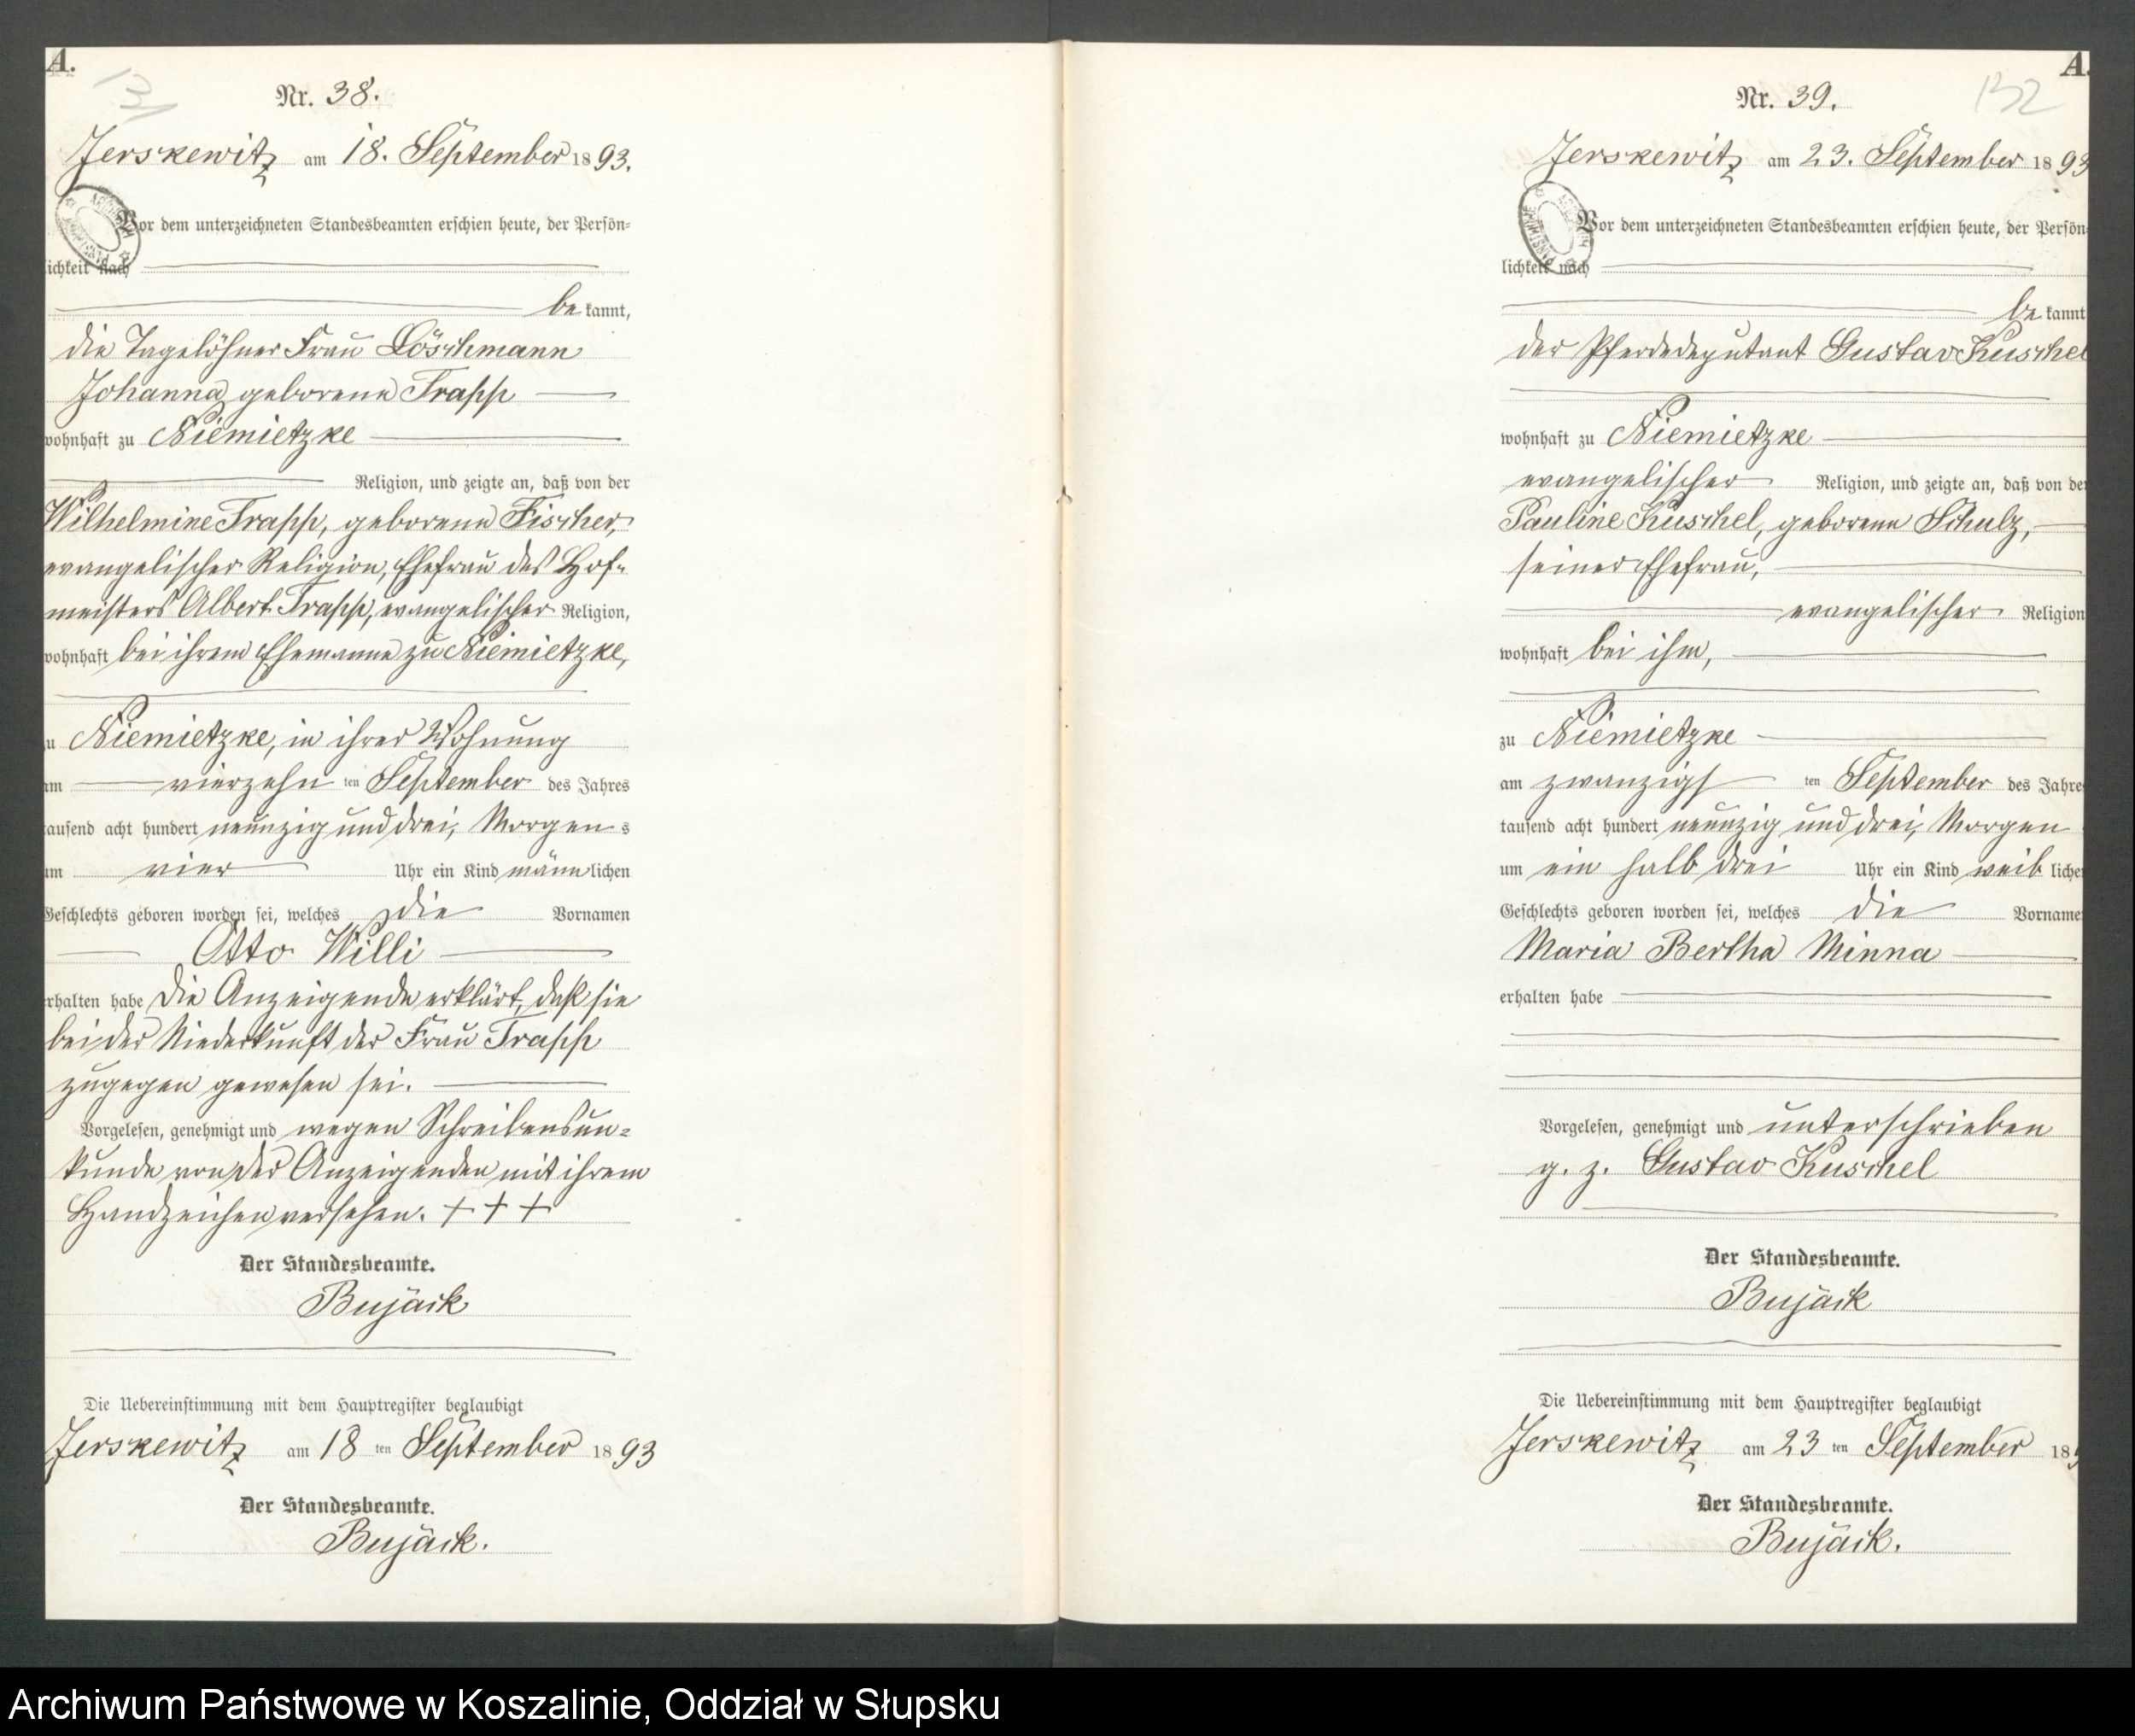 A.
13
Nr. 38.
Jerskewitz am 18. September 1893.
Vor dem unterzeichneten Standesbeamten erschien heute, der Persön-
lichkeit nach
be kannt,
die Tagelöhner Frau Löschmann
Johanna geborene Trapp
wohnhaft zu Niemietzke
Religion, und zeigte an, daß von der
Wilhelmine Trapp, geborene Fischer,
evangelischer Religion, Ehefrau des Hof-
meisters Albert Trapp, evangelischer Religion,
wohnhaft bei ihrem Ehemanne zu Niemietzke,
zu Niemietzke, in ihrer Wohnung
am vierzehn ten September des Jahres
tausend acht hundert neunzig und drei, Morgens
um vier Uhr ein Kind männlichen
Geschlechts geboren worden sei, welches die Vornamen
Otto Willi
erhalten habe Die Anzeigende erklärt, daß sie
bei der Niederkunft der Frau Trapp
zugegen gewesen sei.
Vorgelesen, genehmigt und wegen Schreibensun-
kunde von der Anzeigenden mit ihrem
Handzeichen versehen. + + +
Der Standesbeamte.
Bujack
Die Uebereinstimmung mit dem Hauptregister beglaubigt
Jerskewitz am 18 ten September 1893
Der Standesbeamte.
Bujack.
A.
132
Nr. 39.
Jerskewitz am 23. September 1893
Vor dem unterzeichneten Standesbeamten erschien heute, der Persön-
lichkeit nach
be kannt
der Pferdedeputant Gustav Kuschel
wohnhaft zu Niemietzke
evangelischer Religion, und zeigte an, daß von der
Pauline Kuschel, geborene Schulz,
seiner Ehefrau,
evangelischer Religion
wohnhaft bei ihm,
zu Niemietzke
am zwanzigs ten September des Jahre
tausend acht hundert neunzig und drei, Morgen
um ein halb drei Uhr ein Kind weib liche
Geschlechts geboren worden sei, welches die Vorname
Maria Bertha Minna
erhalten habe
Vorgelesen, genehmigt und unterschrieben
g. z. Gustav Kuschel
Der Standesbeamte.
Bujack
Die Uebereinstimmung mit dem Hauptregister beglaubigt
Jerskewitz am 23 ten September 189
Der Standesbeamte.
Bujack.
Archiwum Państwowe w Koszalinie, Oddział w Słupsku